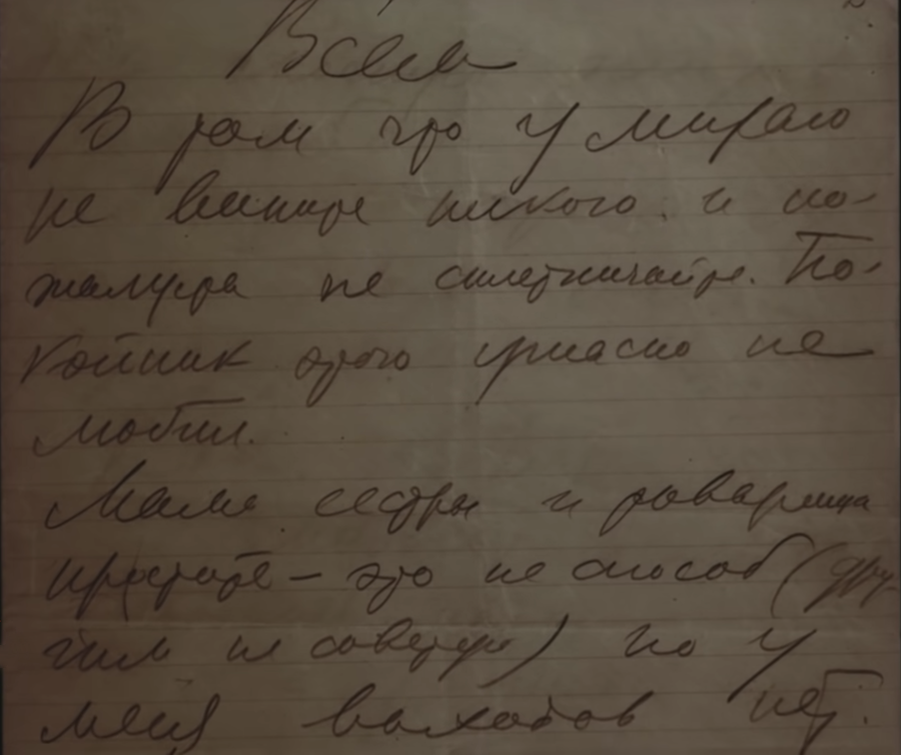 Всем
В том что умираю
не вините никого и по-
жалуйста не сплетничайте. По-
койник этого ужасно не
любил.
Мама сестры и товарищи
простите – это не способ (дру-
гим не советую) но у
меня выходов нет.